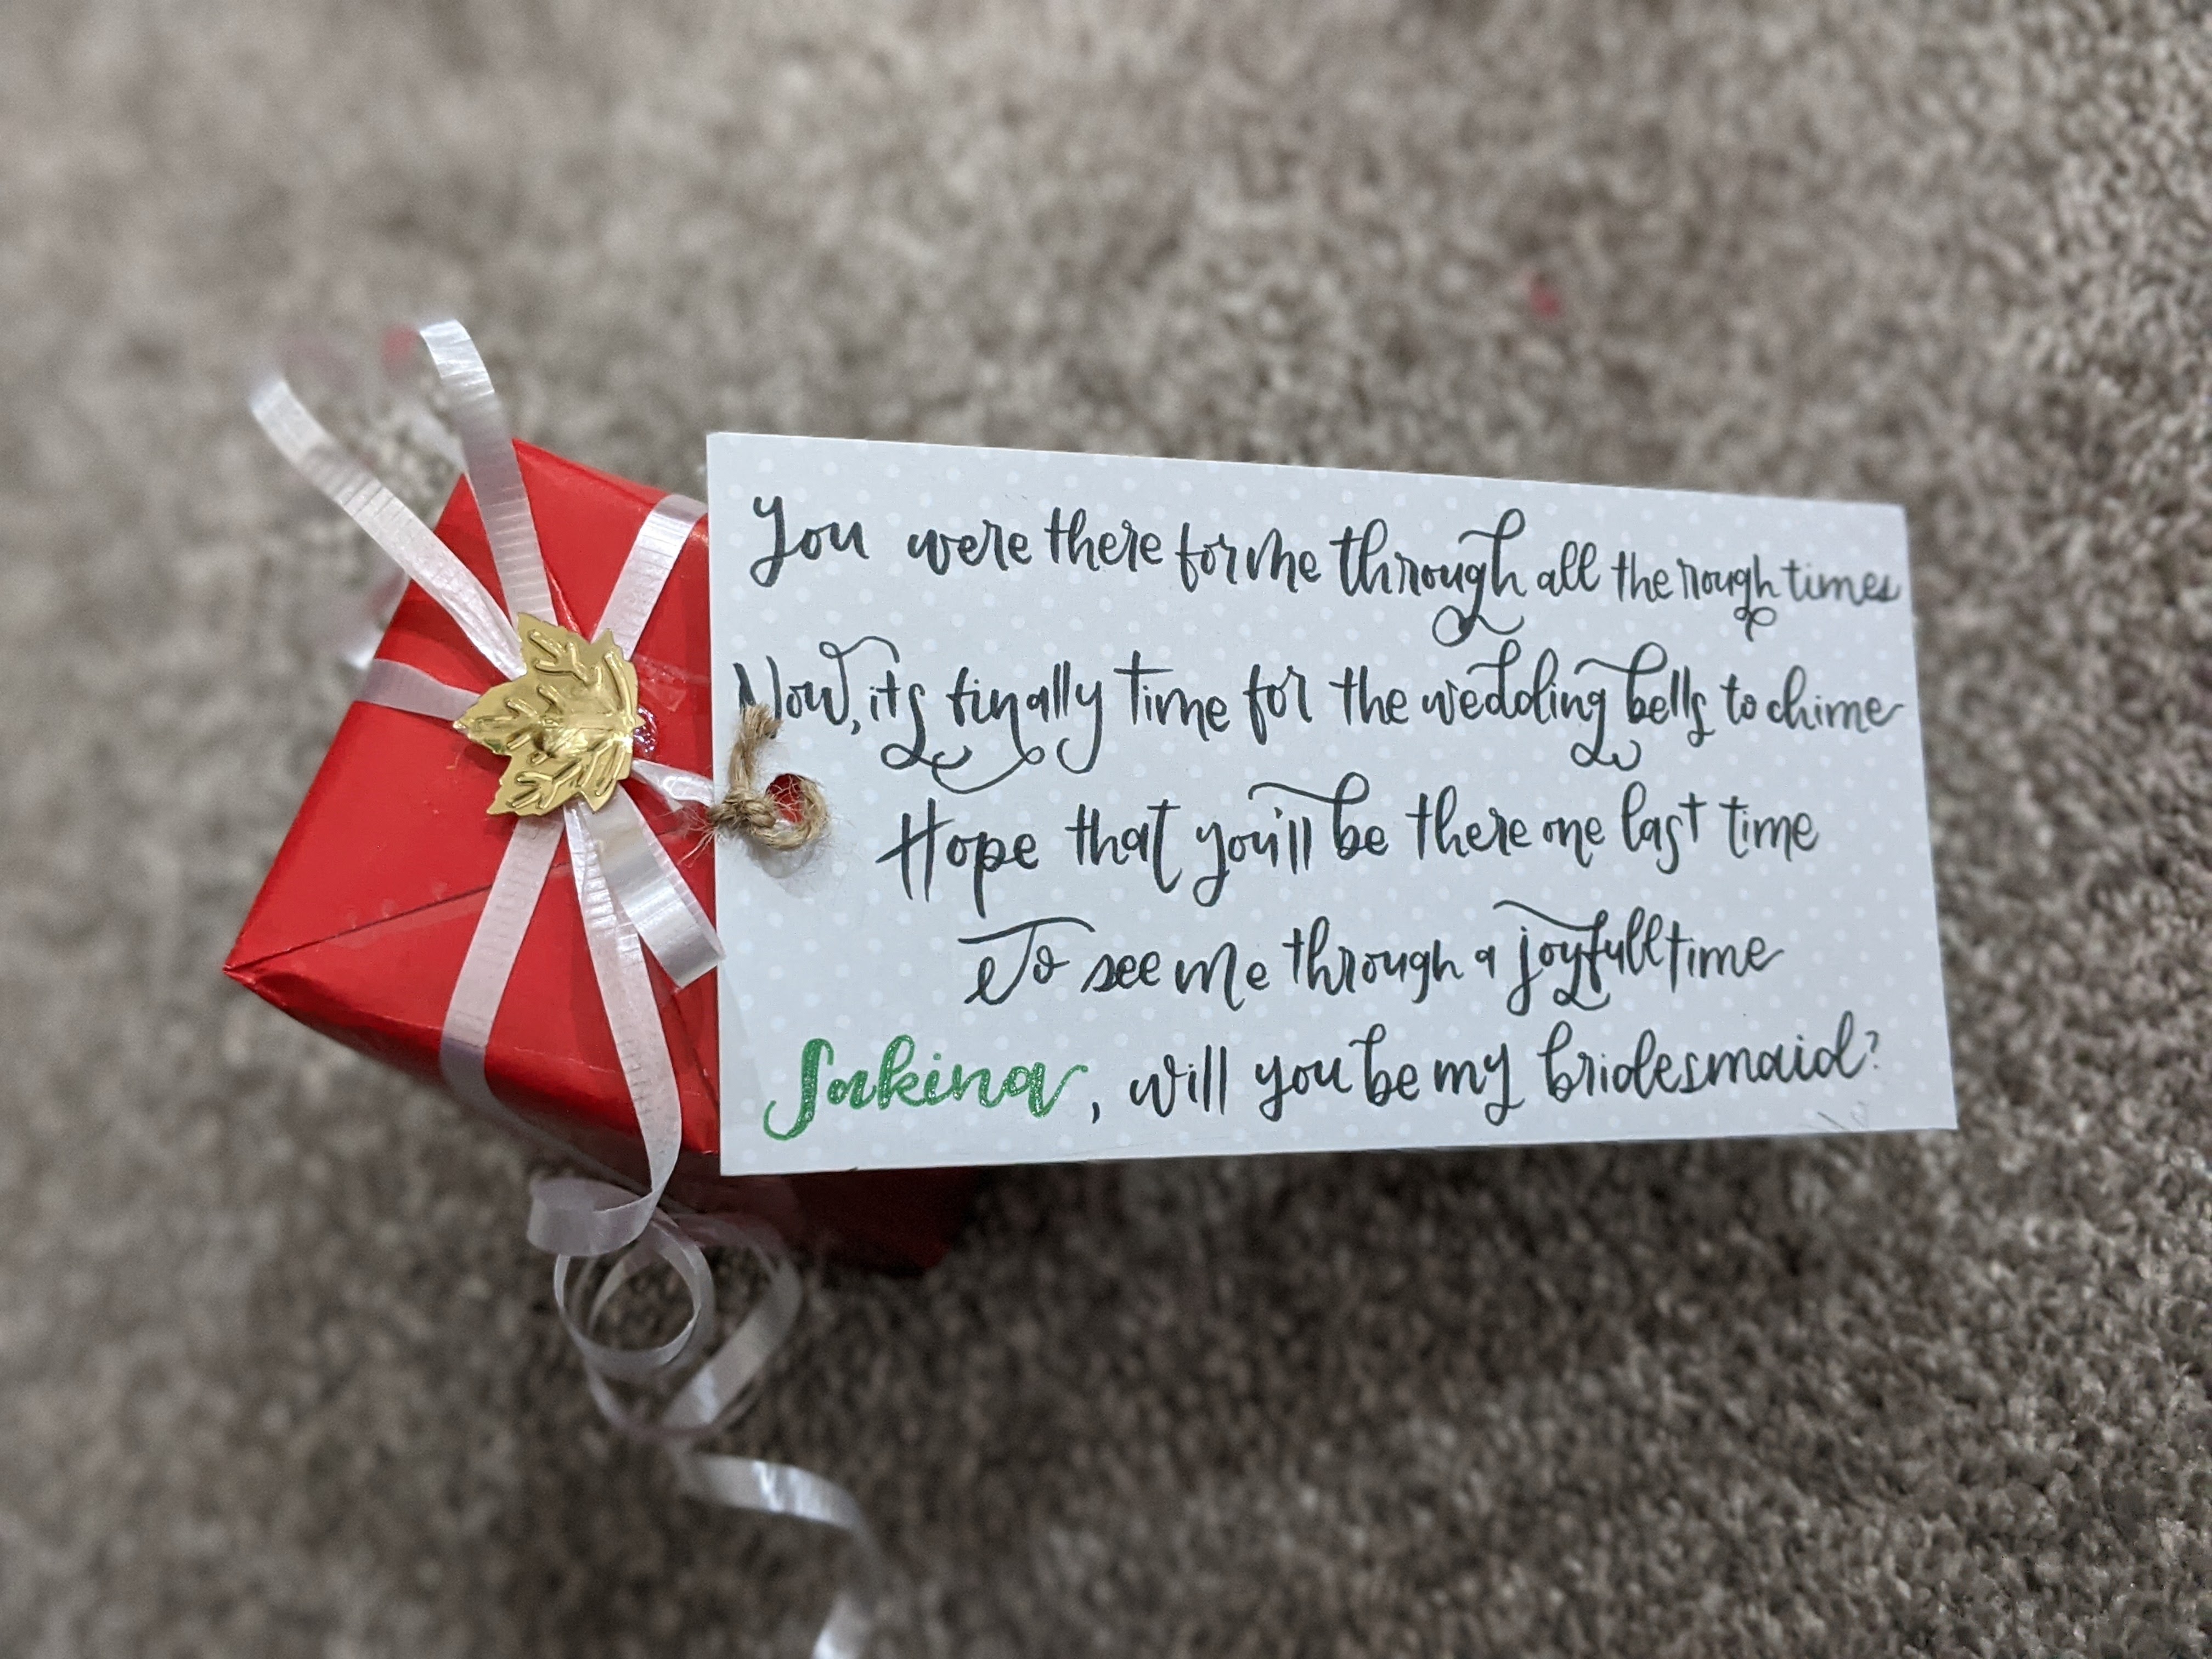 You were there for me through all the rough times
Now, its finally time for the wedding bells to chime
Hope that you'll be there one last time
To see me through a joyfull time
Sakina, will you be my bridesmaid?